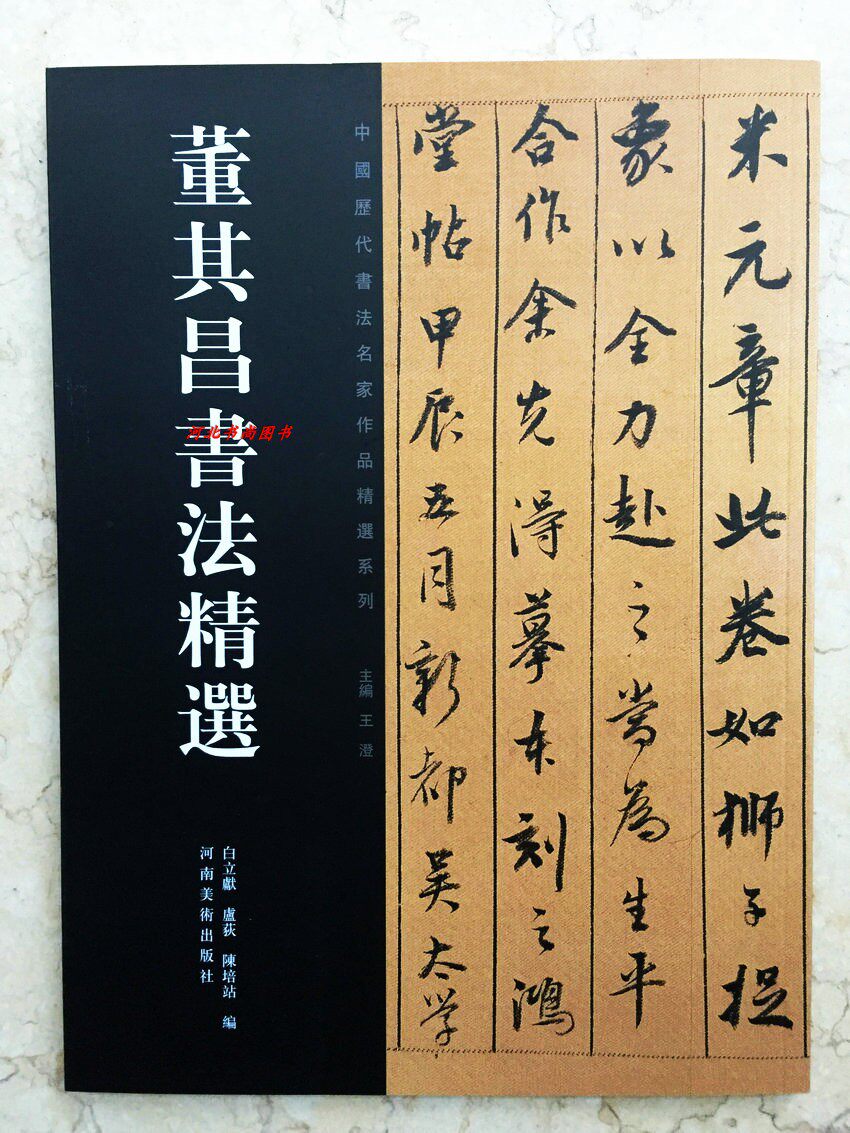 米元章此卷如狮子捉
象以全力赴之當為生平
合作余先淂摹本刻之鴻
堂帖甲辰五月新都吴太学
中國歷代書法名家作品精選系列 主編 王澄
董其昌書法精選
河北书尚图书
白立獻 盧荻 陳培站 編
河南美術出版社